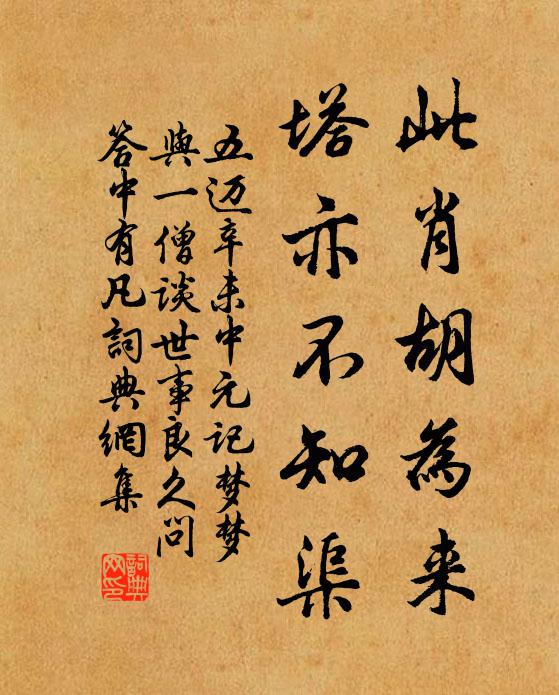 此肖胡為来
塔亦不知渠
五迈辛未中元记梦梦
與一僧谈世事良久问
答中有凡詞典網集
詞典
网印